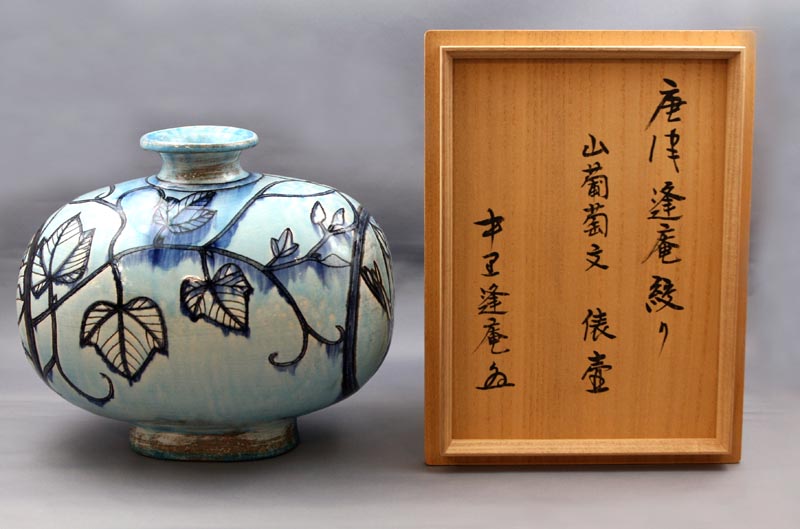 唐津 逢庵絞り
山葡萄文 俵壷
中里逢庵